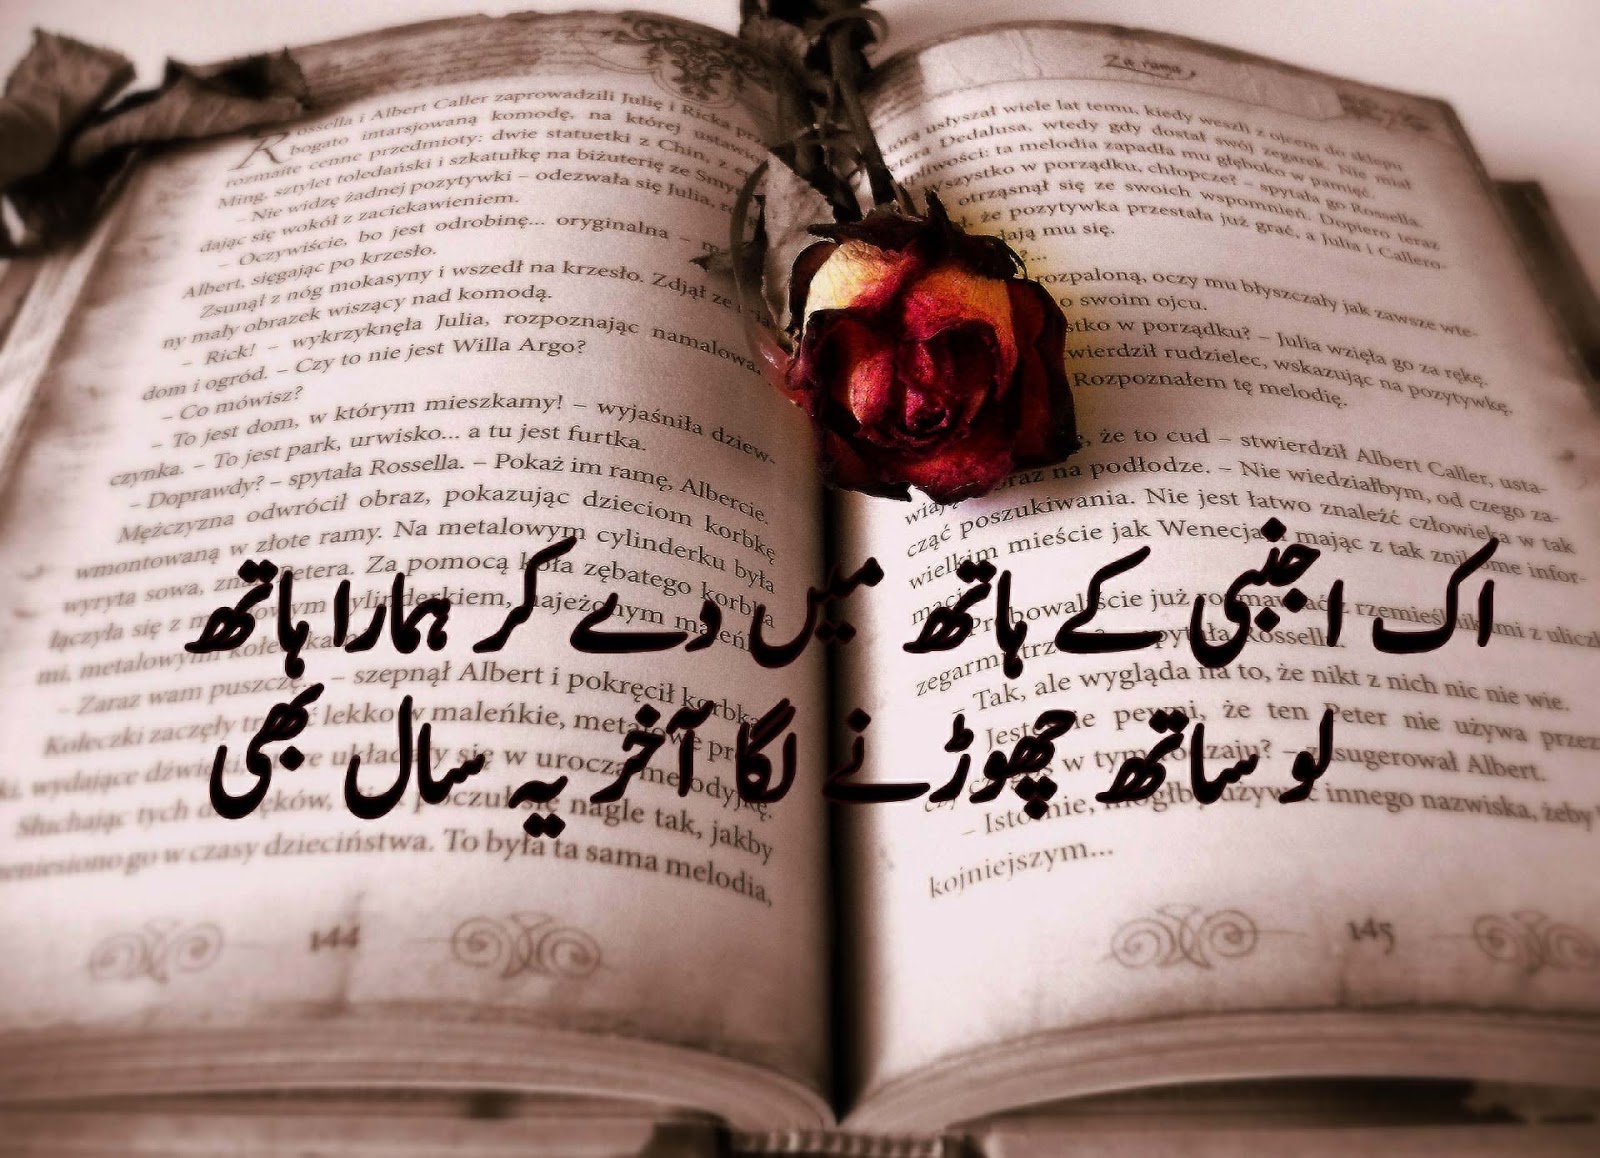 Rossella i Albert Caller zaprowadzili Julię i Ricka
bogato intarsjowaną komodę, na której
rozmaite cenne przedmioty: dwie statuetki z Chin, z
Ming, sztylet toledański i szkatułkę na biżuterię ze
– Nie widzę żadnej pozytywki – odezwała się Julia,
dając się wokół z zaciekawieniem.
– Oczywiście, bo jest odrobinę... oryginalna –
Albert, sięgając po krzesło.
Zsunął z nóg mokasyny i wszedł na krzesło. Zdjął ze
ny mały obrazek wiszący nad komodą.
– Rick! – wykrzyknęła Julia, rozpoznając
dom i ogród. – Czy to nie jest Willa Argo?
– Co mówisz?
– To jest dom, w którym mieszkamy! – wyjaśniła dziew-
czynka. – To jest park, urwisko... a tu jest furtka.
– Doprawdy? – spytała Rossella. – Pokaż im ramę, Albercie.
Mężczyzna odwrócił obraz, pokazując dzieciom korbkę
wmontowaną w złote ramy. Na metalowym cylinderku była
wyryta sowa, Petera. Za pomocą koła zębatego
łączyła się z
mi, metalowymi
– Zaraz wam puszczę... – szepnął Albert i pokręcił korbką.
Kołeczki zaczęły lekko w maleńkie,
wydające się w uroczą melodyjkę.
Słuchając tych nagle tak, jakby
w czasy dzieciństwa. To była ta sama melodia,
144
Za ramą
usłyszał wiele lat temu, kiedy weszli z ojcem do sklepu
Dedalusa, wtedy gdy dostał swój zegarek. Nie miał
ta melodia zapadła mu głęboko w pamięć.
Wszystko w porządku, chłopcze? – spytała go Rossella.
otrząsnął się ze swoich wspomnień. Dopiero teraz
że pozytywka przestała już grać, a Julia i Callero-
mu się.
rozpaloną, oczy mu błyszczały jak zawsze wte-
o swoim ojcu.
w porządku? – Julia wzięła go za rękę.
rudzielec, wskazując na pozytywkę.
Rozpoznałem tę melodię.
że to cud – stwierdził Albert Caller, usta-
obraz na podłodze. – Nie wiedziałbym, od czego za-
cząć poszukiwania. Nie jest łatwo znaleźć człowieka w tak
wielkim mieście jak Wenecja, mając z tak infor-
już
Rossella.
– Tak, ale wygląda na to, że nikt z nich nic nie wie.
że ten Peter nie używa
– zasugerował Albert.
innego nazwiska, żeby
kojniejszym...
145
اک اجنبی کے ہاتھ میں دے کر ہمارا ہاتھ
لو ساتھ چھوڑنے لگا آخر یہ سال بھی